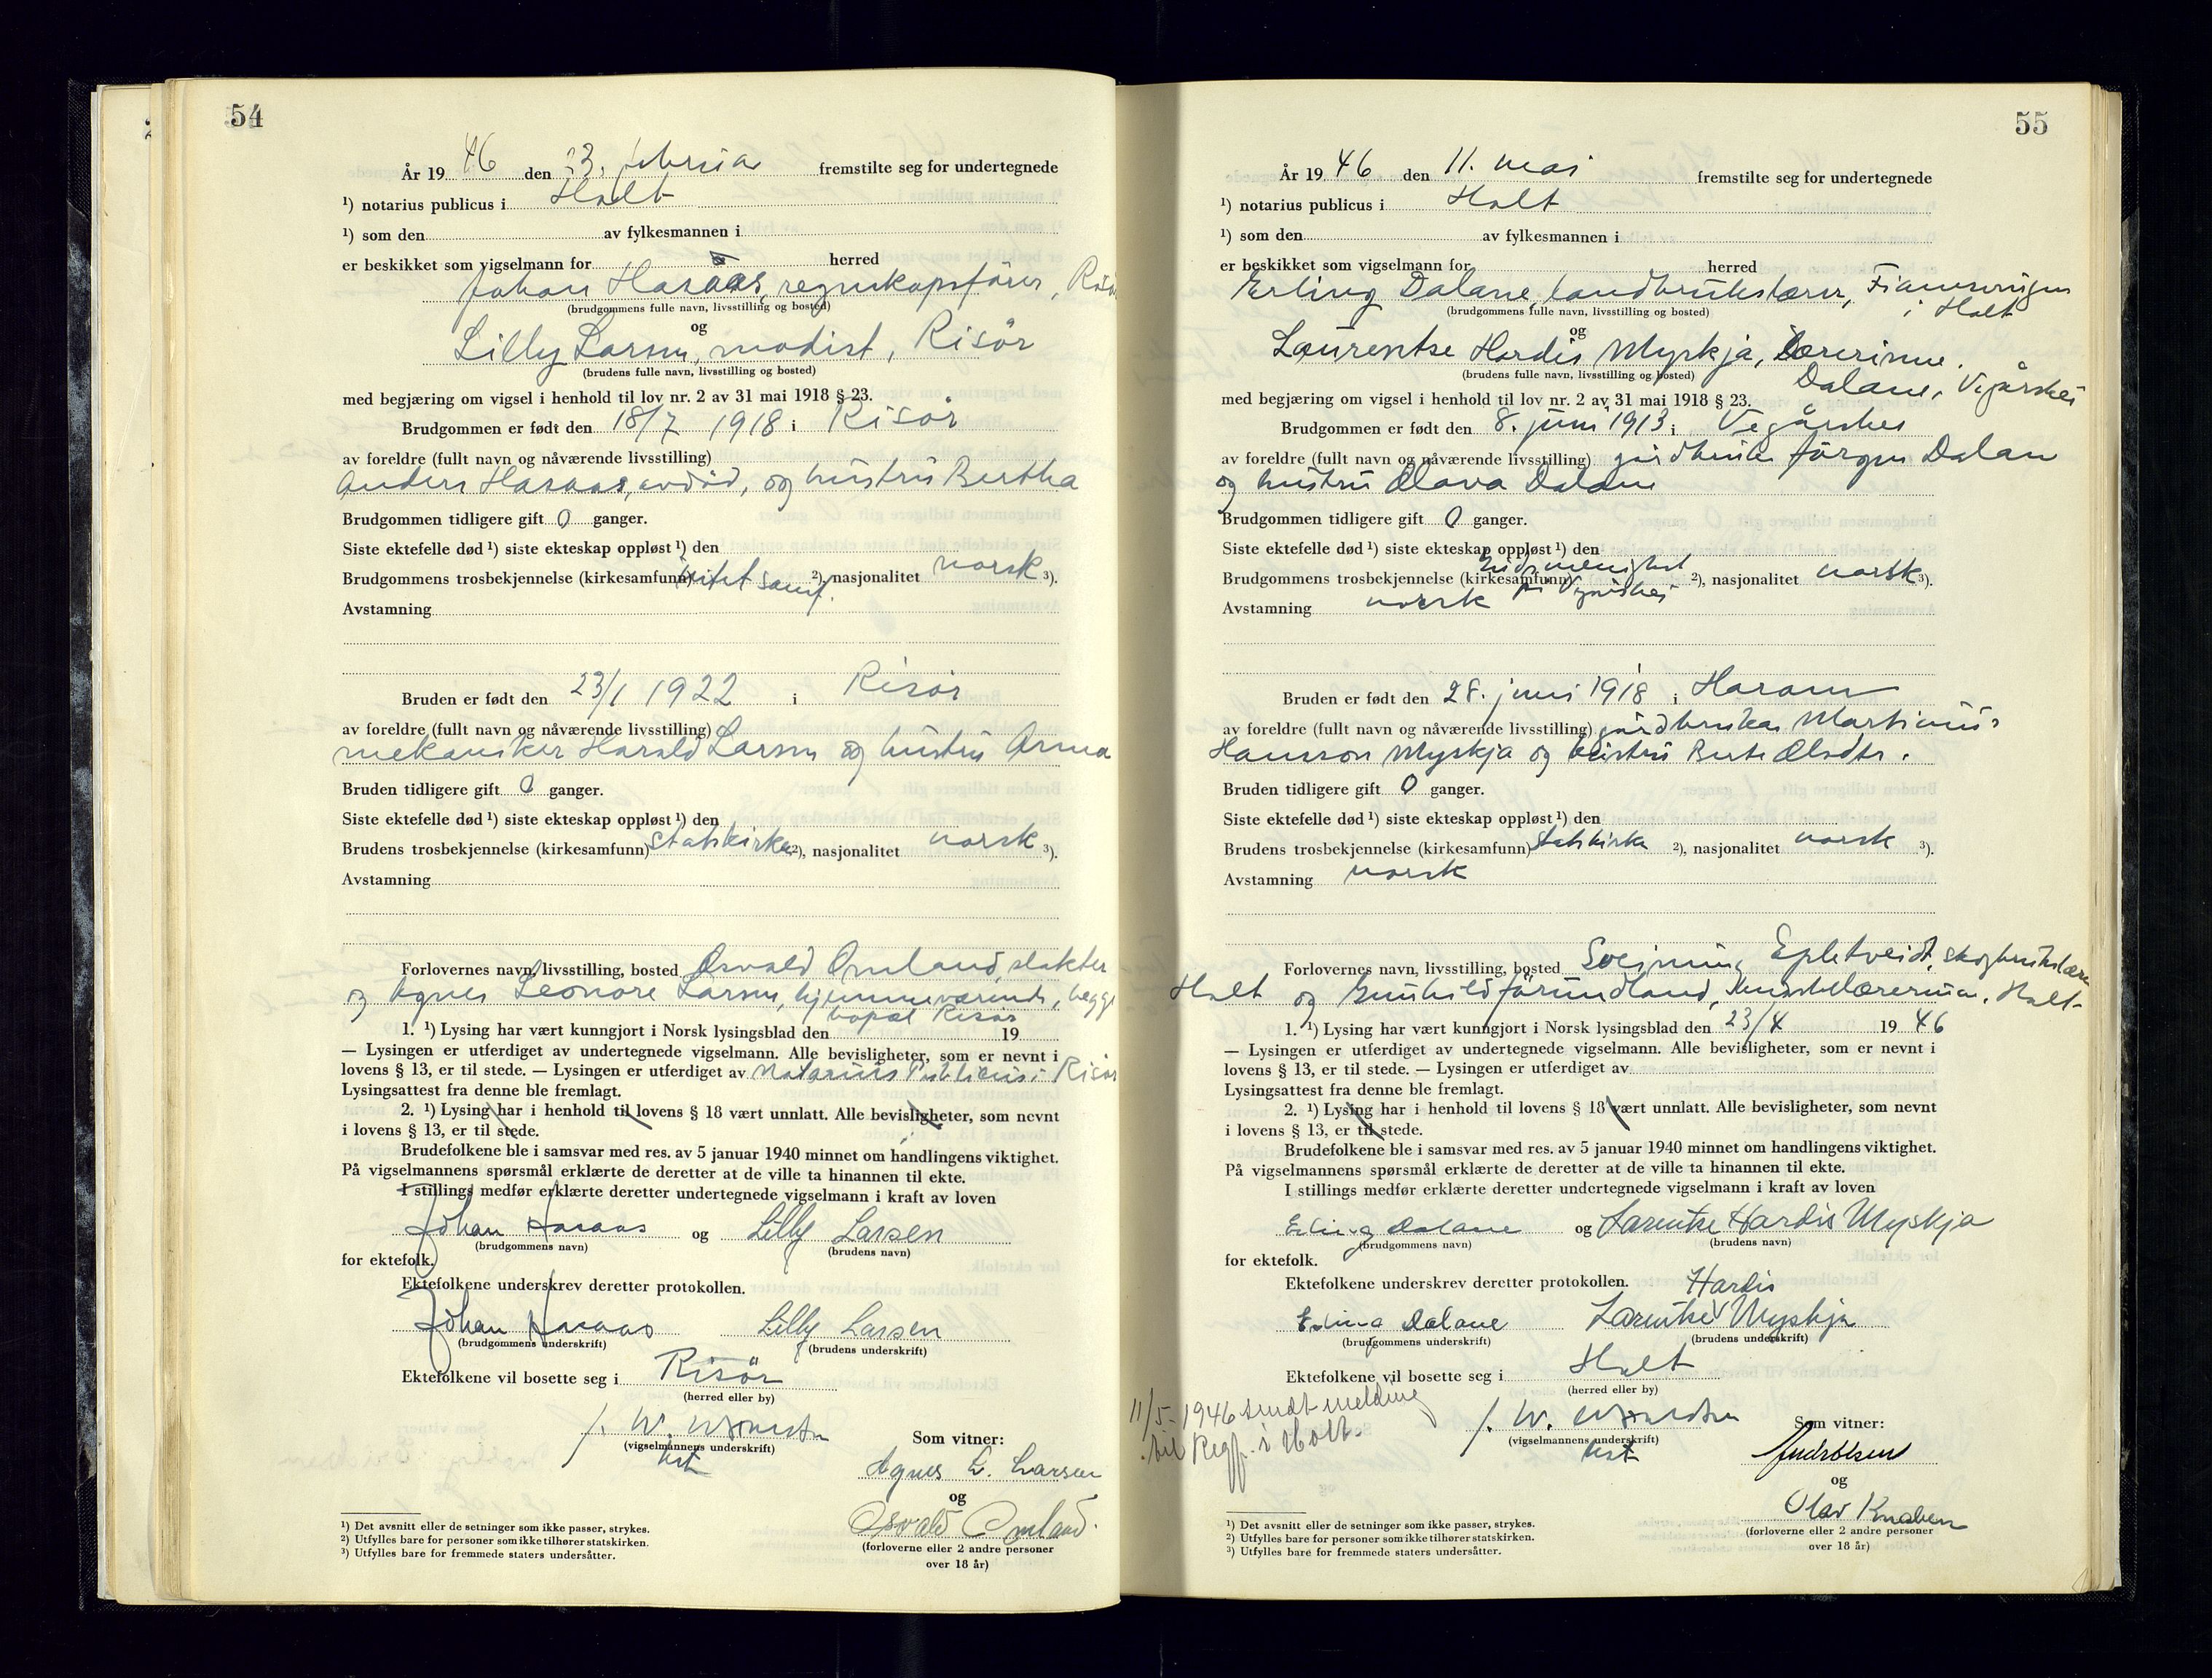 54
År 19 46 den 23. februar fremstilte seg for undertegnede
¹) notarius publicus i Holt
¹) som den av fylkesmannen i
er beskikket som vigselmann for herred
Johan Haraas, regnskapsfører, Risør
(brudgommens fulle navn, livsstilling og bosted)
og
Lilly Larsen, modist, Risør
(brudens fulle navn, livsstilling og bosted)
med begjæring om vigsel i henhold til lov nr. 2 av 31 mai 1918 § 23.
Brudgommen er født den 18/7 1918 i Risør
av foreldre (fullt navn og nåværende livsstilling)
Anders Haraas, avdød, og hustru Bertha
Brudgommen tidligere gift 0 ganger.
Siste ektefelle død ¹) siste ekteskap oppløst ¹) den
Brudgommens trosbekjennelse (kirkesamfunn) intet samf. ²), nasjonalitet norsk ³).
Avstamning
Bruden er født den 23/1 1922 i Risør
av foreldre (fullt navn og nåværende livsstilling)
mekaniker Harald Larsen og hustru Anna
Bruden tidligere gift 0 ganger.
Siste ektefelle død ¹) siste ekteskap oppløst ¹) den
Brudens trosbekjennelse (kirkesamfunn) statskirken ²), nasjonalitet norsk ³).
Avstamning
Forlovernes navn, livsstilling, bosted Osvald Omland, slakter
og Agnes Leonore Larsen, hjemmeværende, begge
bopæl Risør
1. ¹) Lysing har vært kunngjort i Norsk lysingsblad den 19
— Lysingen er utferdiget av undertegnede vigselmann. Alle bevisligheter, som er nevnt i
lovens § 13, er til stede. — Lysingen er utferdiget av Notarius Publicus i Risør
Lysingsattest fra denne ble fremlagt.
2. ¹) Lysing har i henhold til lovens § 18 vært unnlatt. Alle bevisligheter, som nevnt
i lovens § 13, er til stede.
Brudefolkene ble i samsvar med res. av 5 januar 1940 minnet om handlingens viktighet.
På vigselmannens spørsmål erklærte de deretter at de ville ta hinannen til ekte.
I stillings medfør erklærte deretter undertegnede vigselmann i kraft av loven
Johan Haraas og Lilly Larsen
(brudgommens navn) (brudens navn)
for ektefolk.
Ektefolkene underskrev deretter protokollen.
Johan Haraas Lilly Larsen
(brudgommens underskrift) (brudens underskrift)
Ektefolkene vil bosette seg i Risør
(herred eller by)
J. W.
(vigselmannens underskrift)
Som vitner:
Agnes L. Larsen
og
Osvald Omland.
(forloverne eller 2 andre personer
over 18 år)
¹) Det avsnitt eller de setninger som ikke passer, strykes.
²) Utfylles bare for personer som ikke tilhører statskirken.
³) Utfylles bare for fremmede staters undersåtter.
55
År 19 46 den 11. mai fremstilte seg for undertegnede
¹) notarius publicus i Holt
¹) som den av fylkesmannen i
er beskikket som vigselmann for herred
Erling Dalane, landbrukslærer,
i Holt
(brudgommens fulle navn, livsstilling og bosted)
og
Laurentse Hardis Myskja, lærerinne,
(brudens fulle navn, livsstilling og bosted)
Dalane, Vegårshei
med begjæring om vigsel i henhold til lov nr. 2 av 31 mai 1918 § 23.
Brudgommen er født den 8. juni 1913 i Vegårshei
av foreldre (fullt navn og nåværende livsstilling) gårdbruker Jørgen Dalan
og hustru Olava Dalane
Brudgommen tidligere gift 0 ganger.
Siste ektefelle død ¹) siste ekteskap oppløst ¹) den
Brudgommens trosbekjennelse (kirkesamfunn) frimenighet ²), nasjonalitet norsk ³).
i Vegårshei
Avstamning norsk
Bruden er født den 28. juni 1918 i Haram
av foreldre (fullt navn og nåværende livsstilling) gårdbruker Martinus
Hansson Myskja og hustru Berte Olsdtr.
Bruden tidligere gift 0 ganger.
Siste ektefelle død ¹) siste ekteskap oppløst ¹) den
Brudens trosbekjennelse (kirkesamfunn) statskirke ²), nasjonalitet norsk ³).
Avstamning norsk
Forlovernes navn, livsstilling, bosted Sveinung Epletveidt, skogbrukslærer
Holt og Gunhild Jørundland, Holt
1. ¹) Lysing har vært kunngjort i Norsk lysingsblad den 23/4 19 46
— Lysingen er utferdiget av undertegnede vigselmann. Alle bevisligheter, som er nevnt i
lovens § 13, er til stede. — Lysingen er utferdiget av
Lysingsattest fra denne ble fremlagt.
2. ¹) Lysing har i henhold til lovens § 18 vært unnlatt. Alle bevisligheter, som nevnt
i lovens § 13, er til stede.
Brudefolkene ble i samsvar med res. av 5 januar 1940 minnet om handlingens viktighet.
På vigselmannens spørsmål erklærte de deretter at de ville ta hinannen til ekte.
I stillings medfør erklærte deretter undertegnede vigselmann i kraft av loven
Erling Dalane og Larentse Hardis Myskja
(brudgommens navn) (brudens navn)
for ektefolk.
Ektefolkene underskrev deretter protokollen.
Hardis
Erling Dalane Larentse Myskja
(brudgommens underskrift) (brudens underskrift)
Ektefolkene vil bosette seg i Holt
(herred eller by)
11/5-1946 sendt melding
til Regf. i Holt.
J. W.
(vigselmannens underskrift)
Som vitner:
og
Olav Knaben
(forloverne eller 2 andre personer
over 18 år)
¹) Det avsnitt eller de setninger som ikke passer, strykes.
²) Utfylles bare for personer som ikke tilhører statskirken.
³) Utfylles bare for fremmede staters undersåtter.